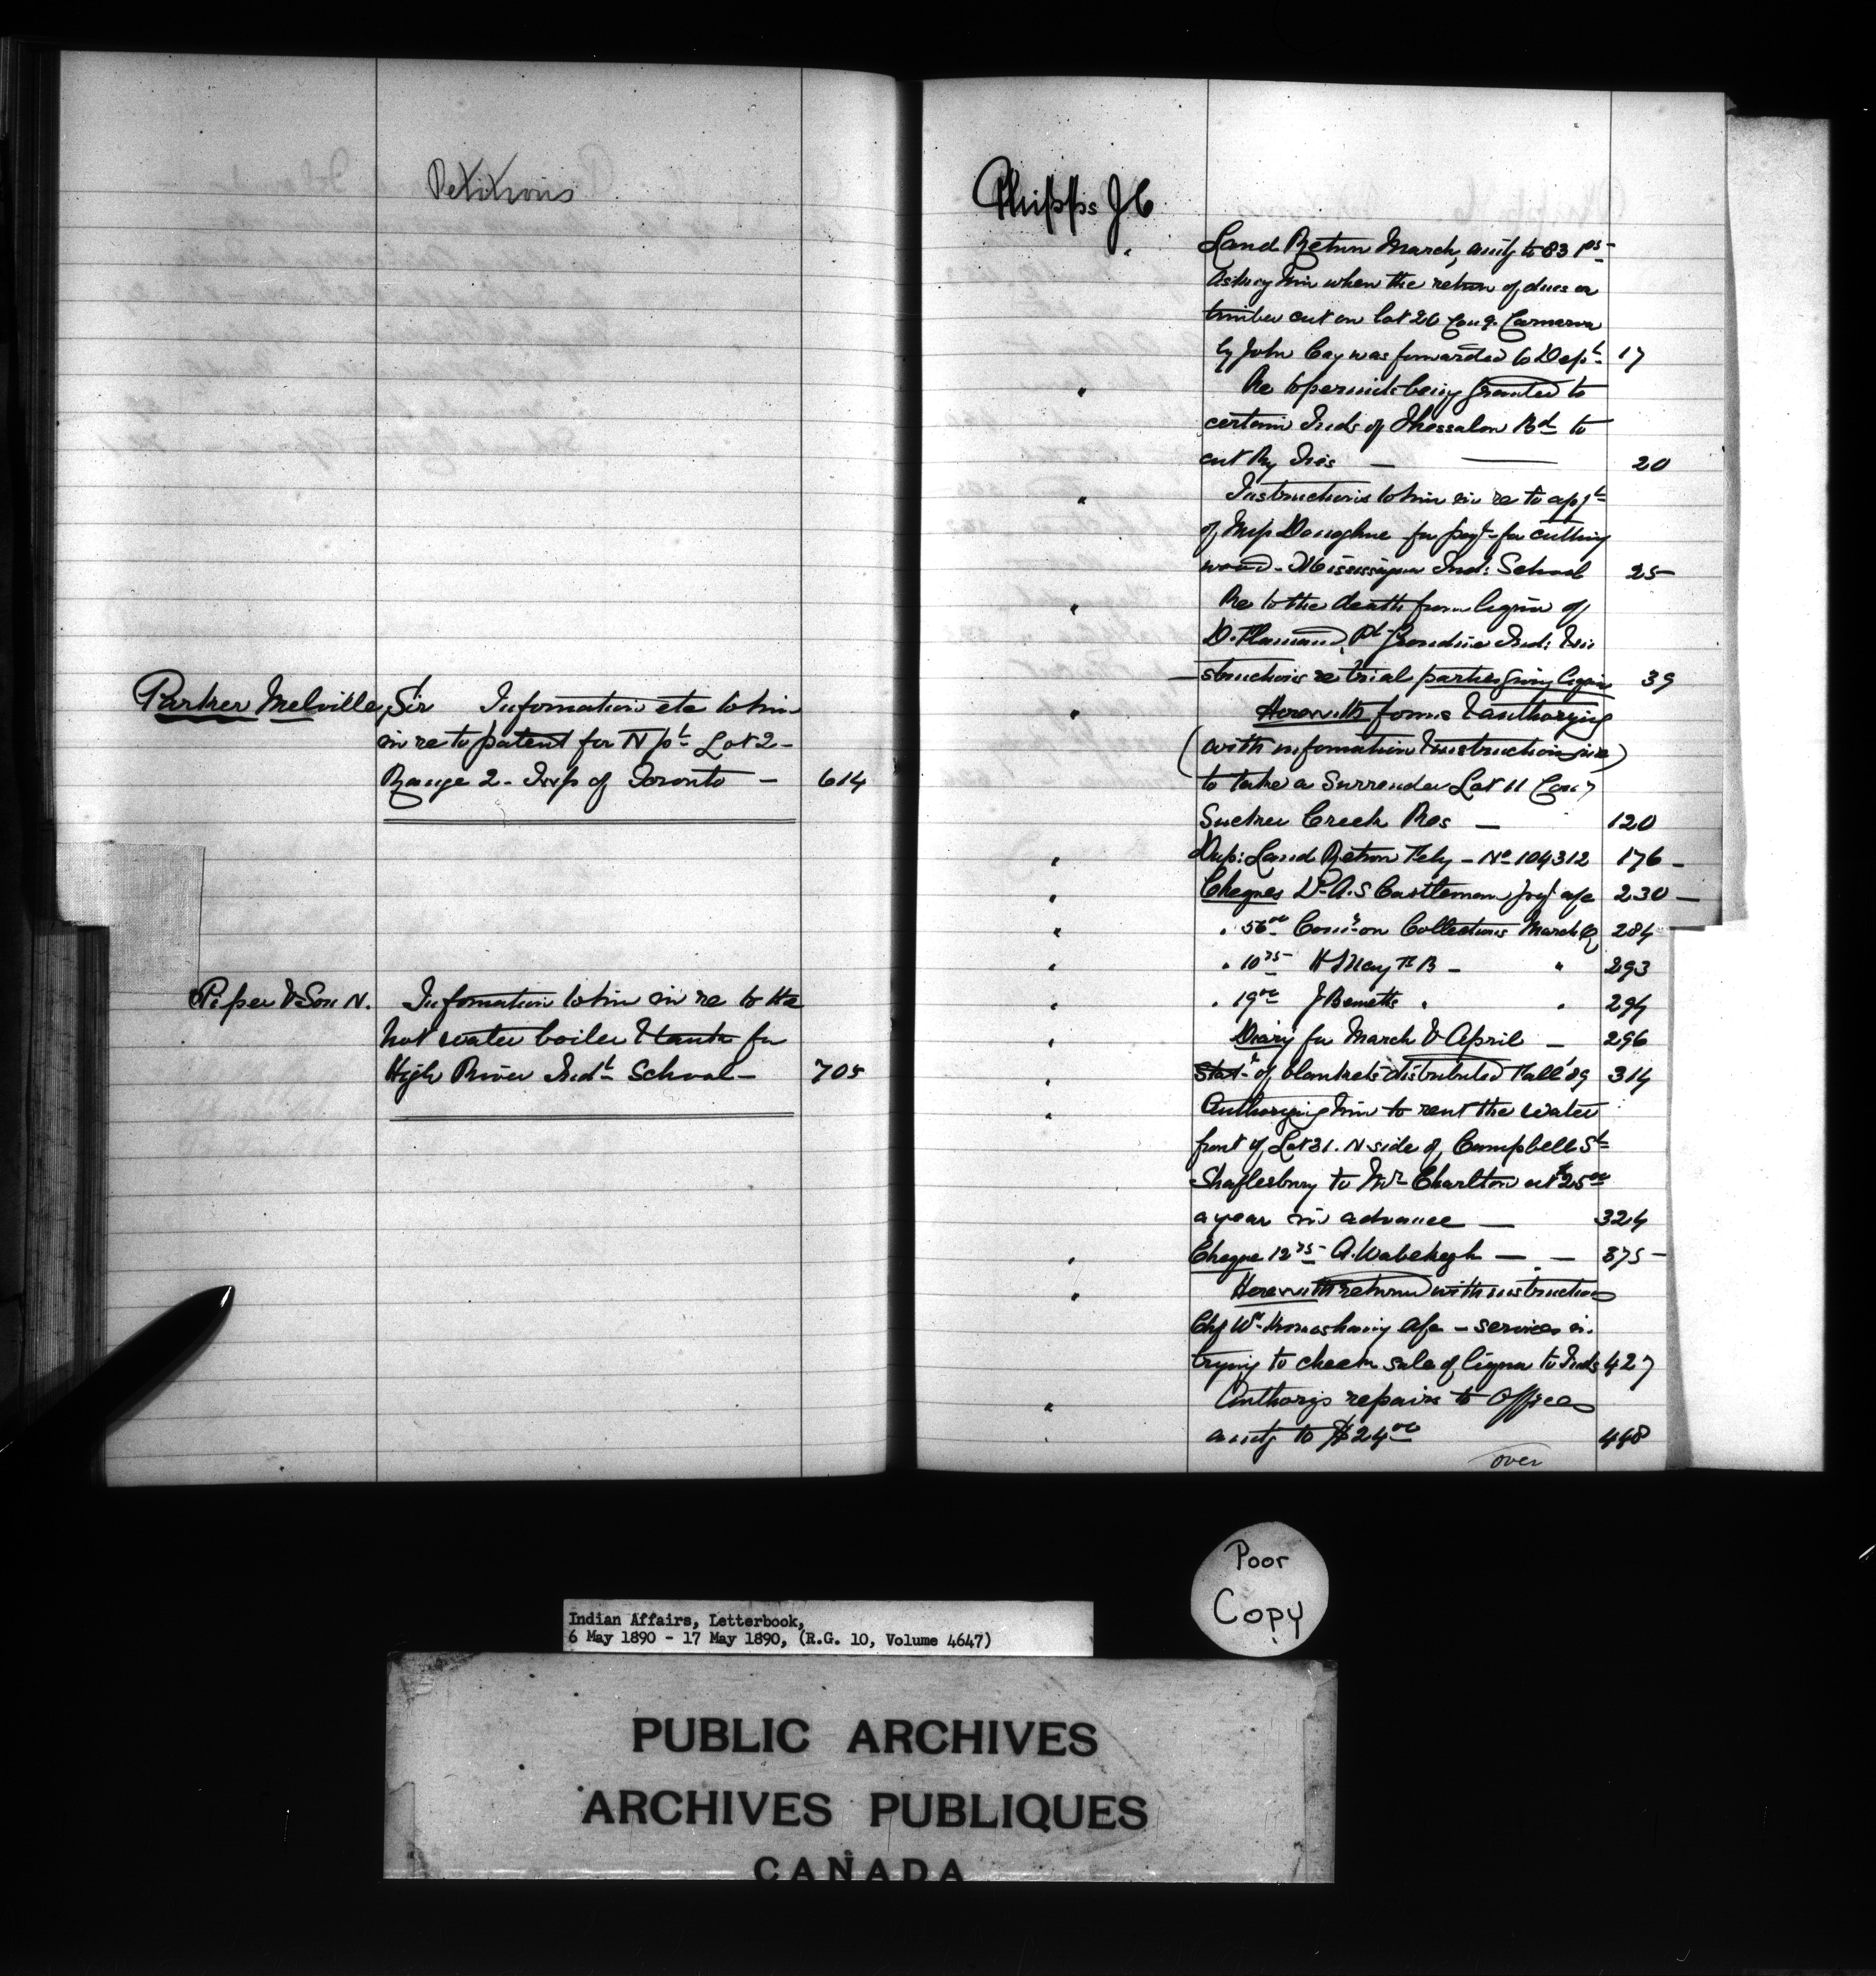 Petitions
Parker Melville, Sir Information etc to him
in re to patent for N pt Lot 2 -
Range 2 - Twp of Toronto - 614
Piper & Son N. Information to him in re to the
hot water boiler & tank for
High River Indl School - 705
Phipps J C
" Land Return March, amtg to 83
Asking him when the return of dues on
timber cut on lot 26 Con 9. Carnarvon
by John Cay was forwarded to Dept. 17
" Re to permit being granted to
certain Inds of Thessalon Bd to
cut Ry Ties — — 20
" Instructions to him in re to appt
of Donoghue for payt for cutting
wood - Mississagua Ind: School 25
" Re to the death from liquor of
D. Flamand, Pt Grondine Ind: & in
structions re trial parties giving liquor 39
" Herewith forms & authorizing
(with information & instructions give)
to take a Surrender Lot 11 Con 7
Sucker Creek Res — 120
" Dup: Land Return Feby - No 104312 176 -
" Cheques Dr A. S Castleman payt a/c 230 -
" " 56 00 Comn on Collections March Q 284
" " 10 75 H May F B - " 293
" " 19 00 J Bennetts " " 294
" Diary for March & April - 296
" Statt of blankets distributed Fall '89 314
" Authorizing him to rent the water
front of Lot 31. N side of Campbell St
Shaftesbury to Mr Charlton at $25 00
a year in advance — 324
" Cheque 12 75 A. Wabekegh — - 375 -
" Herewith returned with instructions
Chf Wm a/c - services in
trying to check sale of liquor to Inds 427
" Authorizg repairs to Office
amtg to $24 00 448
over
Poor
Copy
Indian Affairs, Letterbook,
6 May 1890 - 17 May 1890, (R.G. 10, Volume 4647)
PUBLIC ARCHIVES
ARCHIVES PUBLIQUES
CANADA